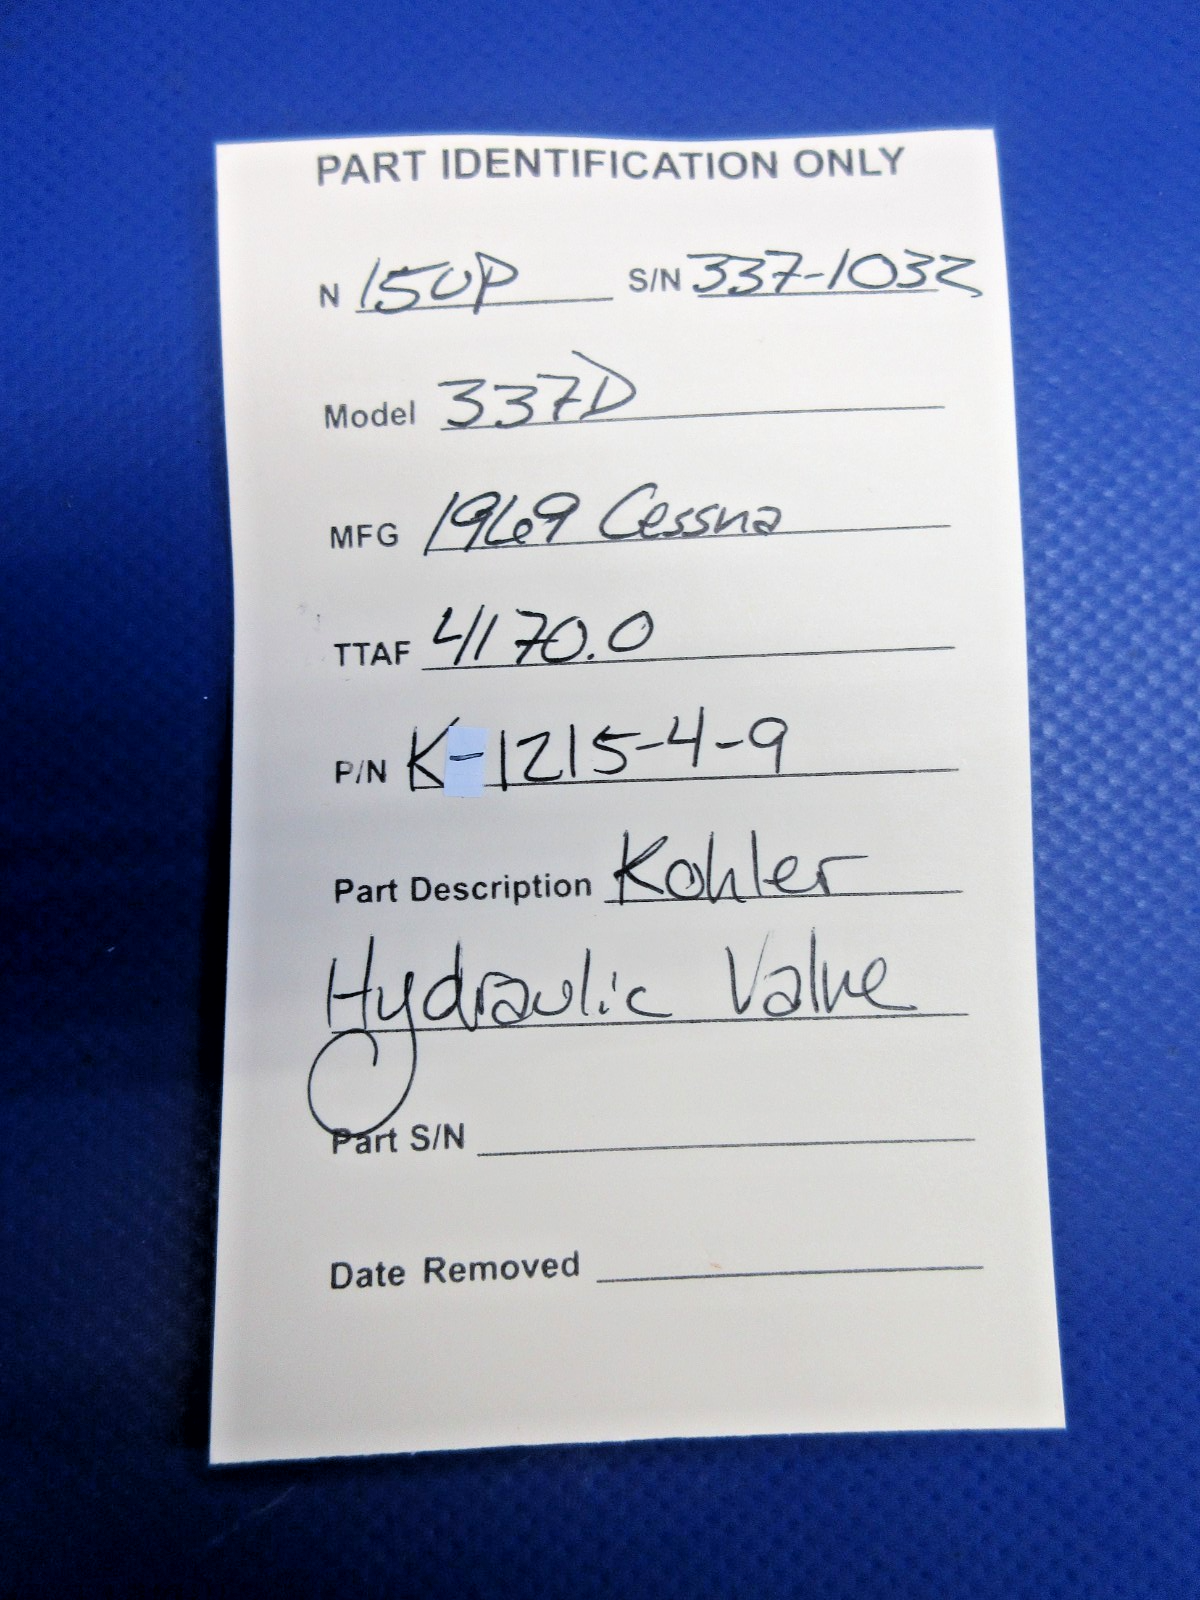 PART IDENTIFICATION ONLY
N 150P S/N 337-1032
Model 337D
MFG 1969 Cessna
TTAF 4170.0
P/N K-1215-4-9
Part Description Kohler
Hydraulic Valve
Part S/N
Date Removed